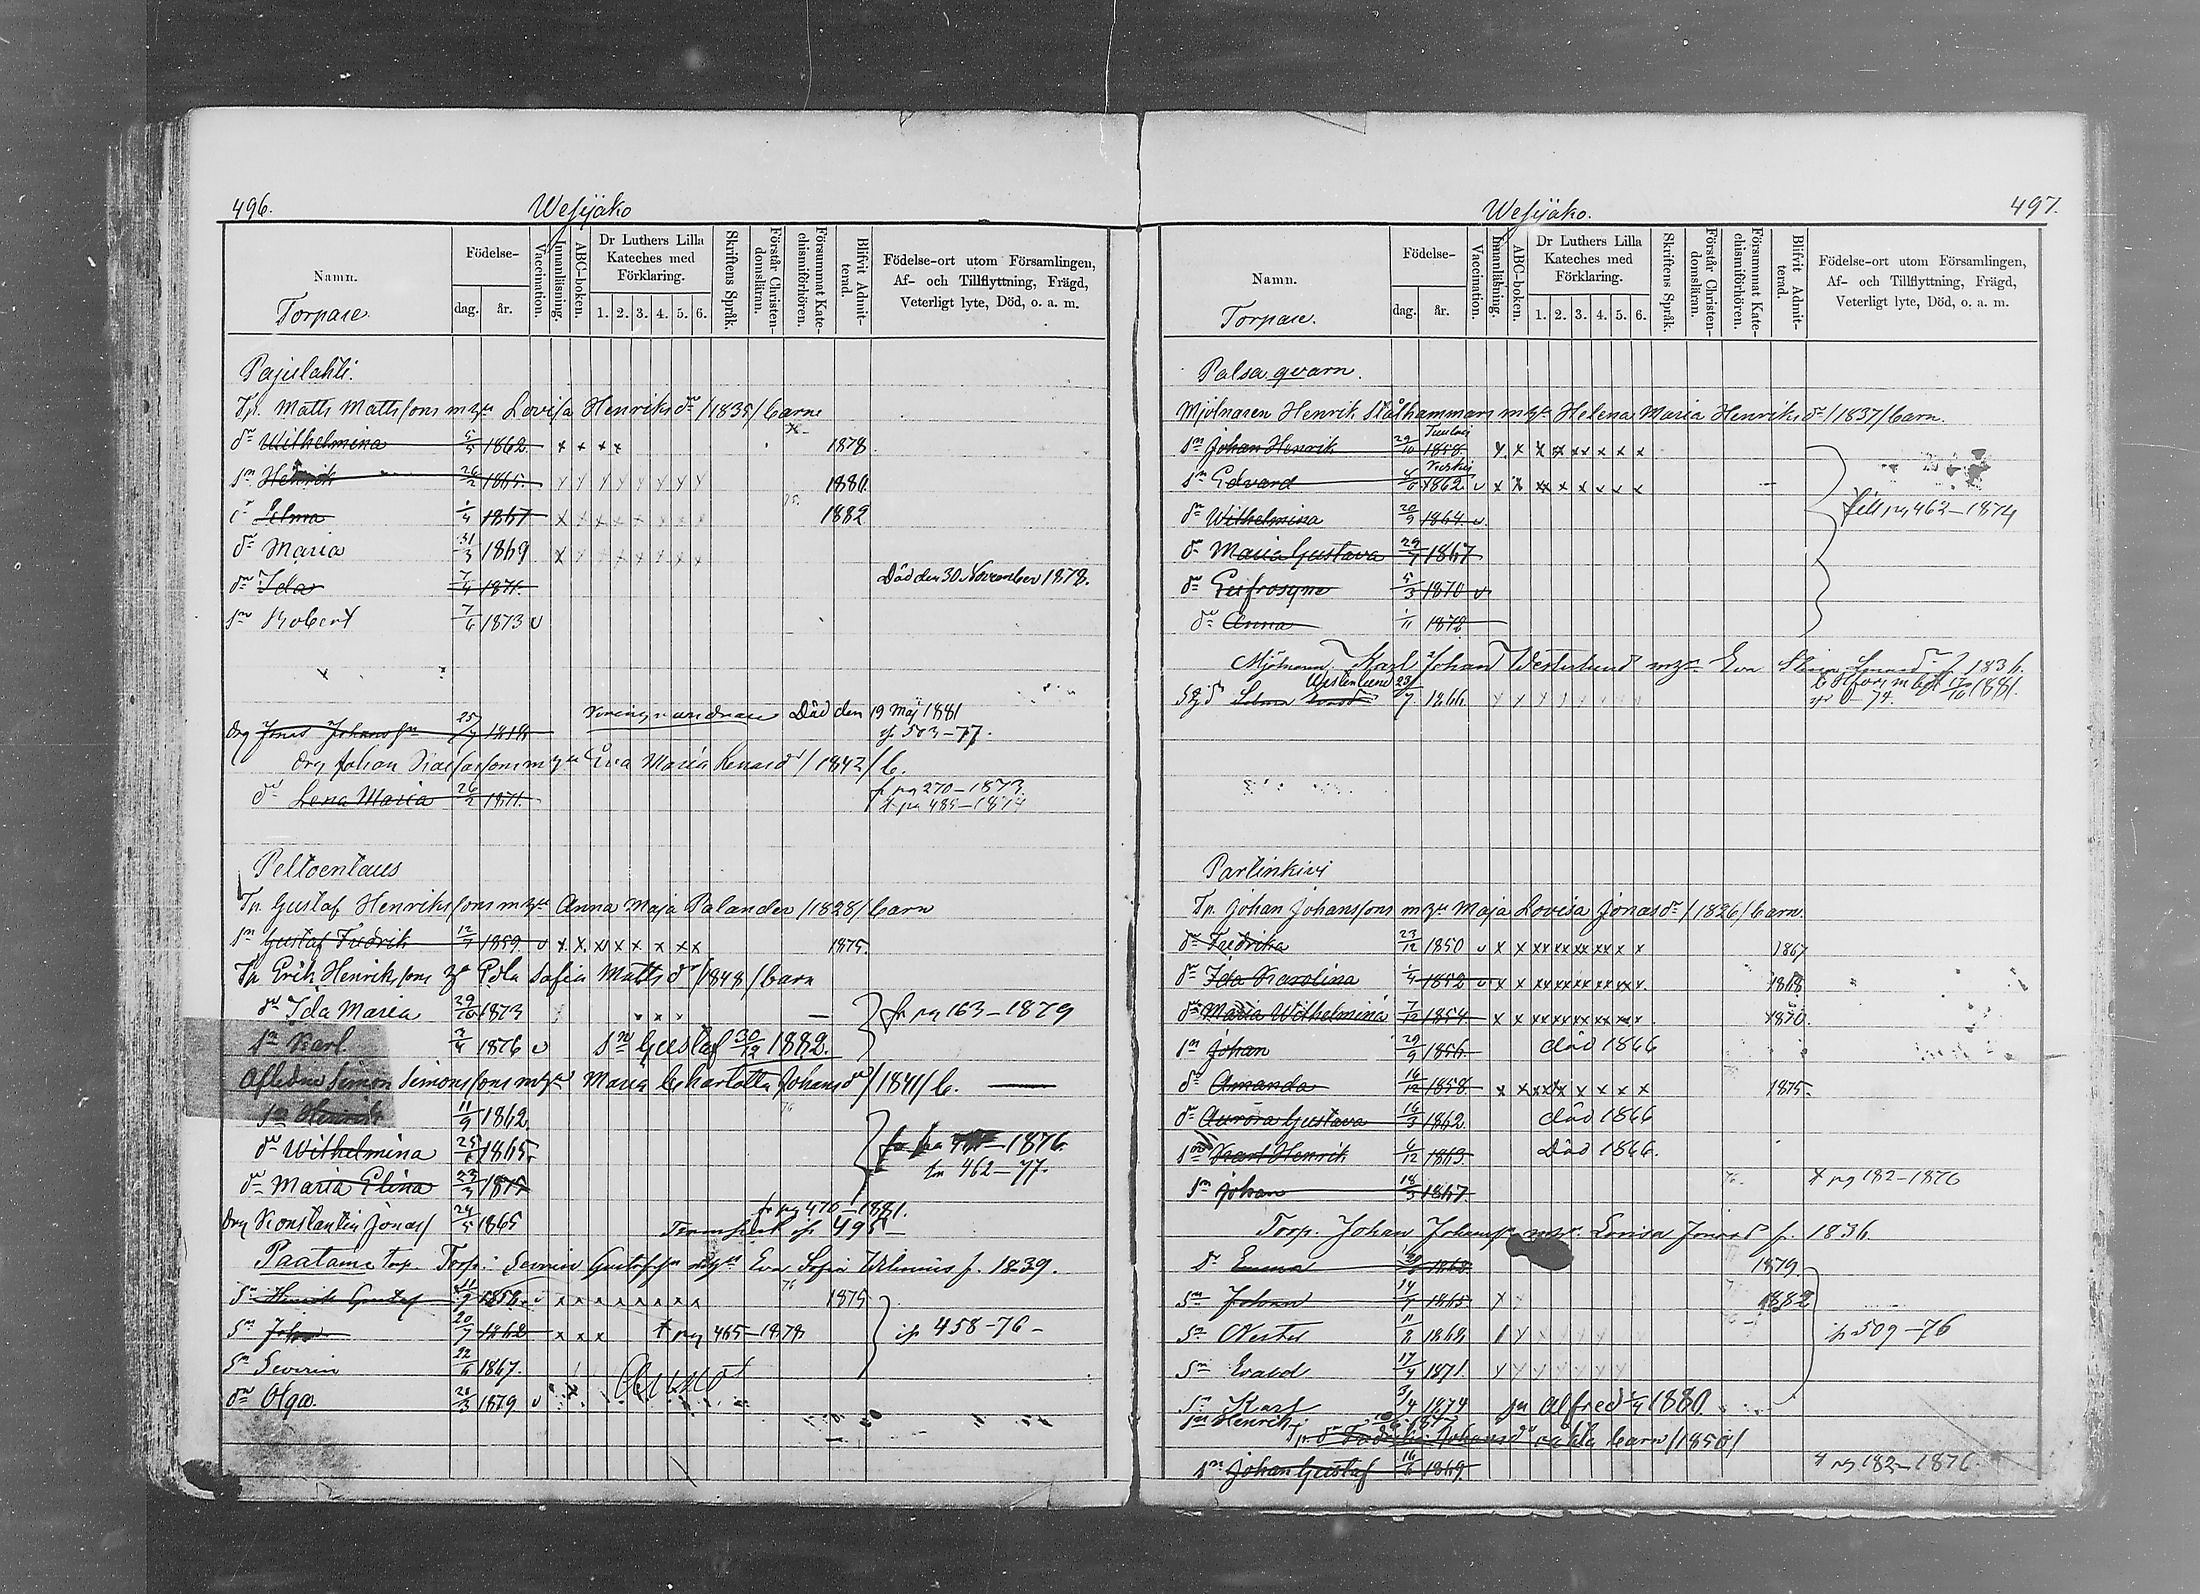 496. Wesijako
Namn.
Torpare
Födelse-
dag. år.
Vaccination.
Innanläsning.
ABC-boken.
Dr Luthers Lilla Kateches med Förklaring.
1. 2. 3. 4. 5. 6.
Skriftens Språk.
Förstår Christendomsläran.
Försummat Katechismiförhören.
Blifvit Admitterad.
Födelse-ort utom Församlingen,
Af- och Tillflyttning, Frägd,
Veterligt lyte, Död, o. a. m.
Pajulahti.
Tp. Matts Mattssons m hu Lovisa Henriksdr /1835/ barn
dr Wilhelmina 5/5 1862 x x x x 1878
sn Henrik 26/2 1865 1880
dr Selma 1/4 1867 1882
dr Maria 31/3 1869
dr Ida 7/4 1871. Död den 30 November 1878.
sn Robert 7/6 1873 v
Död den 19 Maj 1881
Drg Jonas Johanssn 25/7 1818 503-77.
Drg Johan m hu Eva Maria /1842/ b.
dr Lena Maria 26/2 1871. fr pg 270-1873
t pg 485-1874
Peltoentaus
Tp. Gustaf Henrikssons m hu Anna Maja Palander /1828/ barn
sn Gustaf Fredrik 12/7 1859 v x x x x x x x x 1875.
Tp Erik Henrikssons hu Eda Sofia Mattsdr /1848/ barn
dr Ida Maria 29/10 1873 fr pg 163-1879
sn Karl 3/4 1876 v sn Gustaf 30/12 1882.
Aflidne Simon Simonssons m hu Maria Charlotta Johansdr /1841/ b.
sn Henrik 11/9 1862
dr Wilhelmina 25/6 1865 1876
dr Maria Elina 23/3 1875 tn 462-77.
fr pg 470-1881.
Drg Konstantin Jonass 24/5 1865
Paatama torp Torp. Severin Gustafssn Eva Sofia f. 1839.
sn Henrik Gustaf 1858 v x x x x x x x x 1875
sn Johan 20/7 1862 x x x t pg 465-1878 458-76
sn Severin 22/6 1867.
dr Olga 28/3 1879 v
497.
Wesijako.
Namn.
Torpare.
Födelse-
dag. år.
Vaccination.
Innanläsning.
ABC-boken.
Dr Luthers Lilla Kateches med Förklaring.
1. 2. 3. 4. 5. 6.
Skriftens Språk.
Förstår Christendomsläran.
Försummat Katechismiförhören.
Blifvit Admitterad.
Födelse-ort utom Församlingen,
Af- och Tillflyttning, Frägd,
Veterligt lyte, Död, o. a. m.
Palsa qvarn.
Mjölnaren Henrik Stålhammars m hu Helena Maria Henriksdr /1837/ barn.
sn Johan Henrik 29/10 Tuulois 1858 x x x x x x x x x
sn Edvard 6/6 1862 v x x x x x x x x
dr Wilhelmina 20/9 1864 v till pg 462-1874
dr Maria Gustava 29/7 1867
dr Eufrosyne 5/3 1870 v
dr Anna 1/11 1872
Mjölnaren Karl Johan Westerlund m hu Eva f 1836.
Selma Westerlund 23/7 1866 1881.
Partinkivi
Tp. Johan Johanssons m hu Maja Lovisa Jonasdr /1826/ barn.
dr Fredrika 23/12 1850 v x x xx xx xx xx x x 1867
dr Ida Karolina 1/4 1852 v x x xx xx xx xx x x 1868
dr Maria Wilhelmina 7/12 1854 x x xx xx xx xx x x 1870.
sn Johan 29/9 1856 död 1866
dr Amanda 16/12 1858 x x xx x x x x x 1875.
dr Aurora Gustava 16/3 1862 död 1866
sn Karl Henrik 6/12 1863 Död 1866.
sn Johan 18/5 1867 t pg 182-1876
Torp. Johan m hu Lovisa Jonasd f. 1836
dr Emma 1879.
sn Johan 14/7 1865 1882
sn Nestor 11/8 1868 509-76
sn Evald 17/4 1871
sn Karl 3/4 1874 sn Alfred 1/4 1880.
sn Henrik
Johansdr oäkta barn /1850/
sn Johan Gustaf 16/6 1869 t pg 182-1876